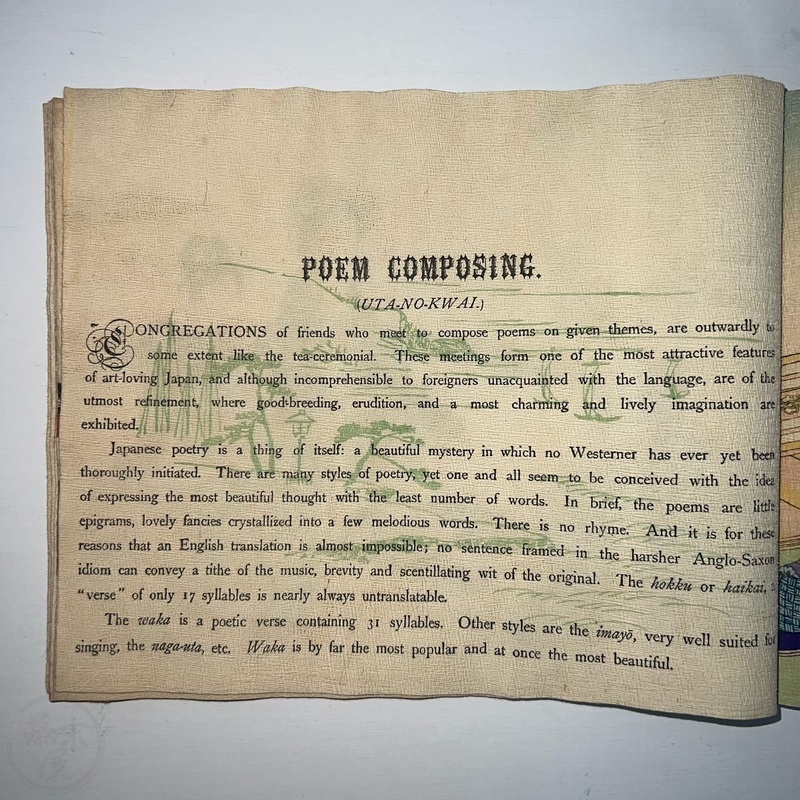 POEM COMPOSING.
(UTA-NO-KWAI.)
CONGREGATIONS of friends who meet to compose poems on given themes, are outwardly to
some extent like the tea-ceremonial. These meetings form one of the most attractive features
of art-loving Japan, and although incomprehensible to foreigners unacquainted with the language, are of the
utmost refinement, where good-breeding, erudition, and a most charming and lively imagination are
exhibited.
Japanese poetry is a thing of itself: a beautiful mystery in which no Westerner has ever yet been
thoroughly initiated. There are many styles of poetry, yet one and all seem to be conceived with the idea
of expressing the most beautiful thought with the least number of words. In brief, the poems are little
epigrams, lovely fancies crystallized into a few melodious words. There is no rhyme. And it is for these
reasons that an English translation is almost impossible; no sentence framed in the harsher Anglo-Saxon
idiom can convey a tithe of the music, brevity and scentillating wit of the original. The hokku or haikai, a
"verse" of only 17 syllables is nearly always untranslatable.
The waka is a poetic verse containing 31 syllables. Other styles are the imayō, very well suited for
singing, the naga-uta, etc. Waka is by far the most popular and at once the most beautiful.